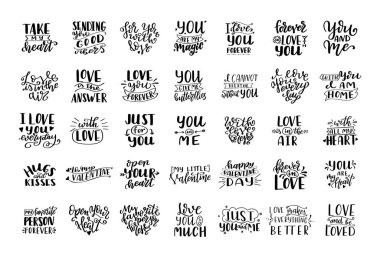 TAKE
MY
heart
SENDING
YOU
GOOD
VIBES
for you
with
love
YOU
ARE
MY
magic
I love
YOU
FOREVER
forever
LOVE
YOU
You
AND
Me
Love
is in the
air
LOVE
IS THE
ANSWER
LOVE
YOU
FOREVER
YOU
GIVE ME
butterflies
I CANNOT
I love
you
every
day
WITH YOU
I AM
HOME
I LOVE
YOU
everyday
with
LOVE
JUST
FOR
YOU
YOU
AND
ME
With
love
LOVE
IS IN THE
AIR
with
ALL MY
HEART
HUGS
AND
KISSES
to my
VALENTINE
open
YOUR
heart
MY LITTLE
Valentine
happy
VALENTINE
DAY
forever
IN
LOVE
YOU
ARE
my
heart
my favorite
PERSON
FOREVER
Open
Your
My
favorite
Love
YOU
MUCH
JUST
YOU AND ME
LOVE makes
EVERYTHING
BETTER
LOVE
and be
LOVED